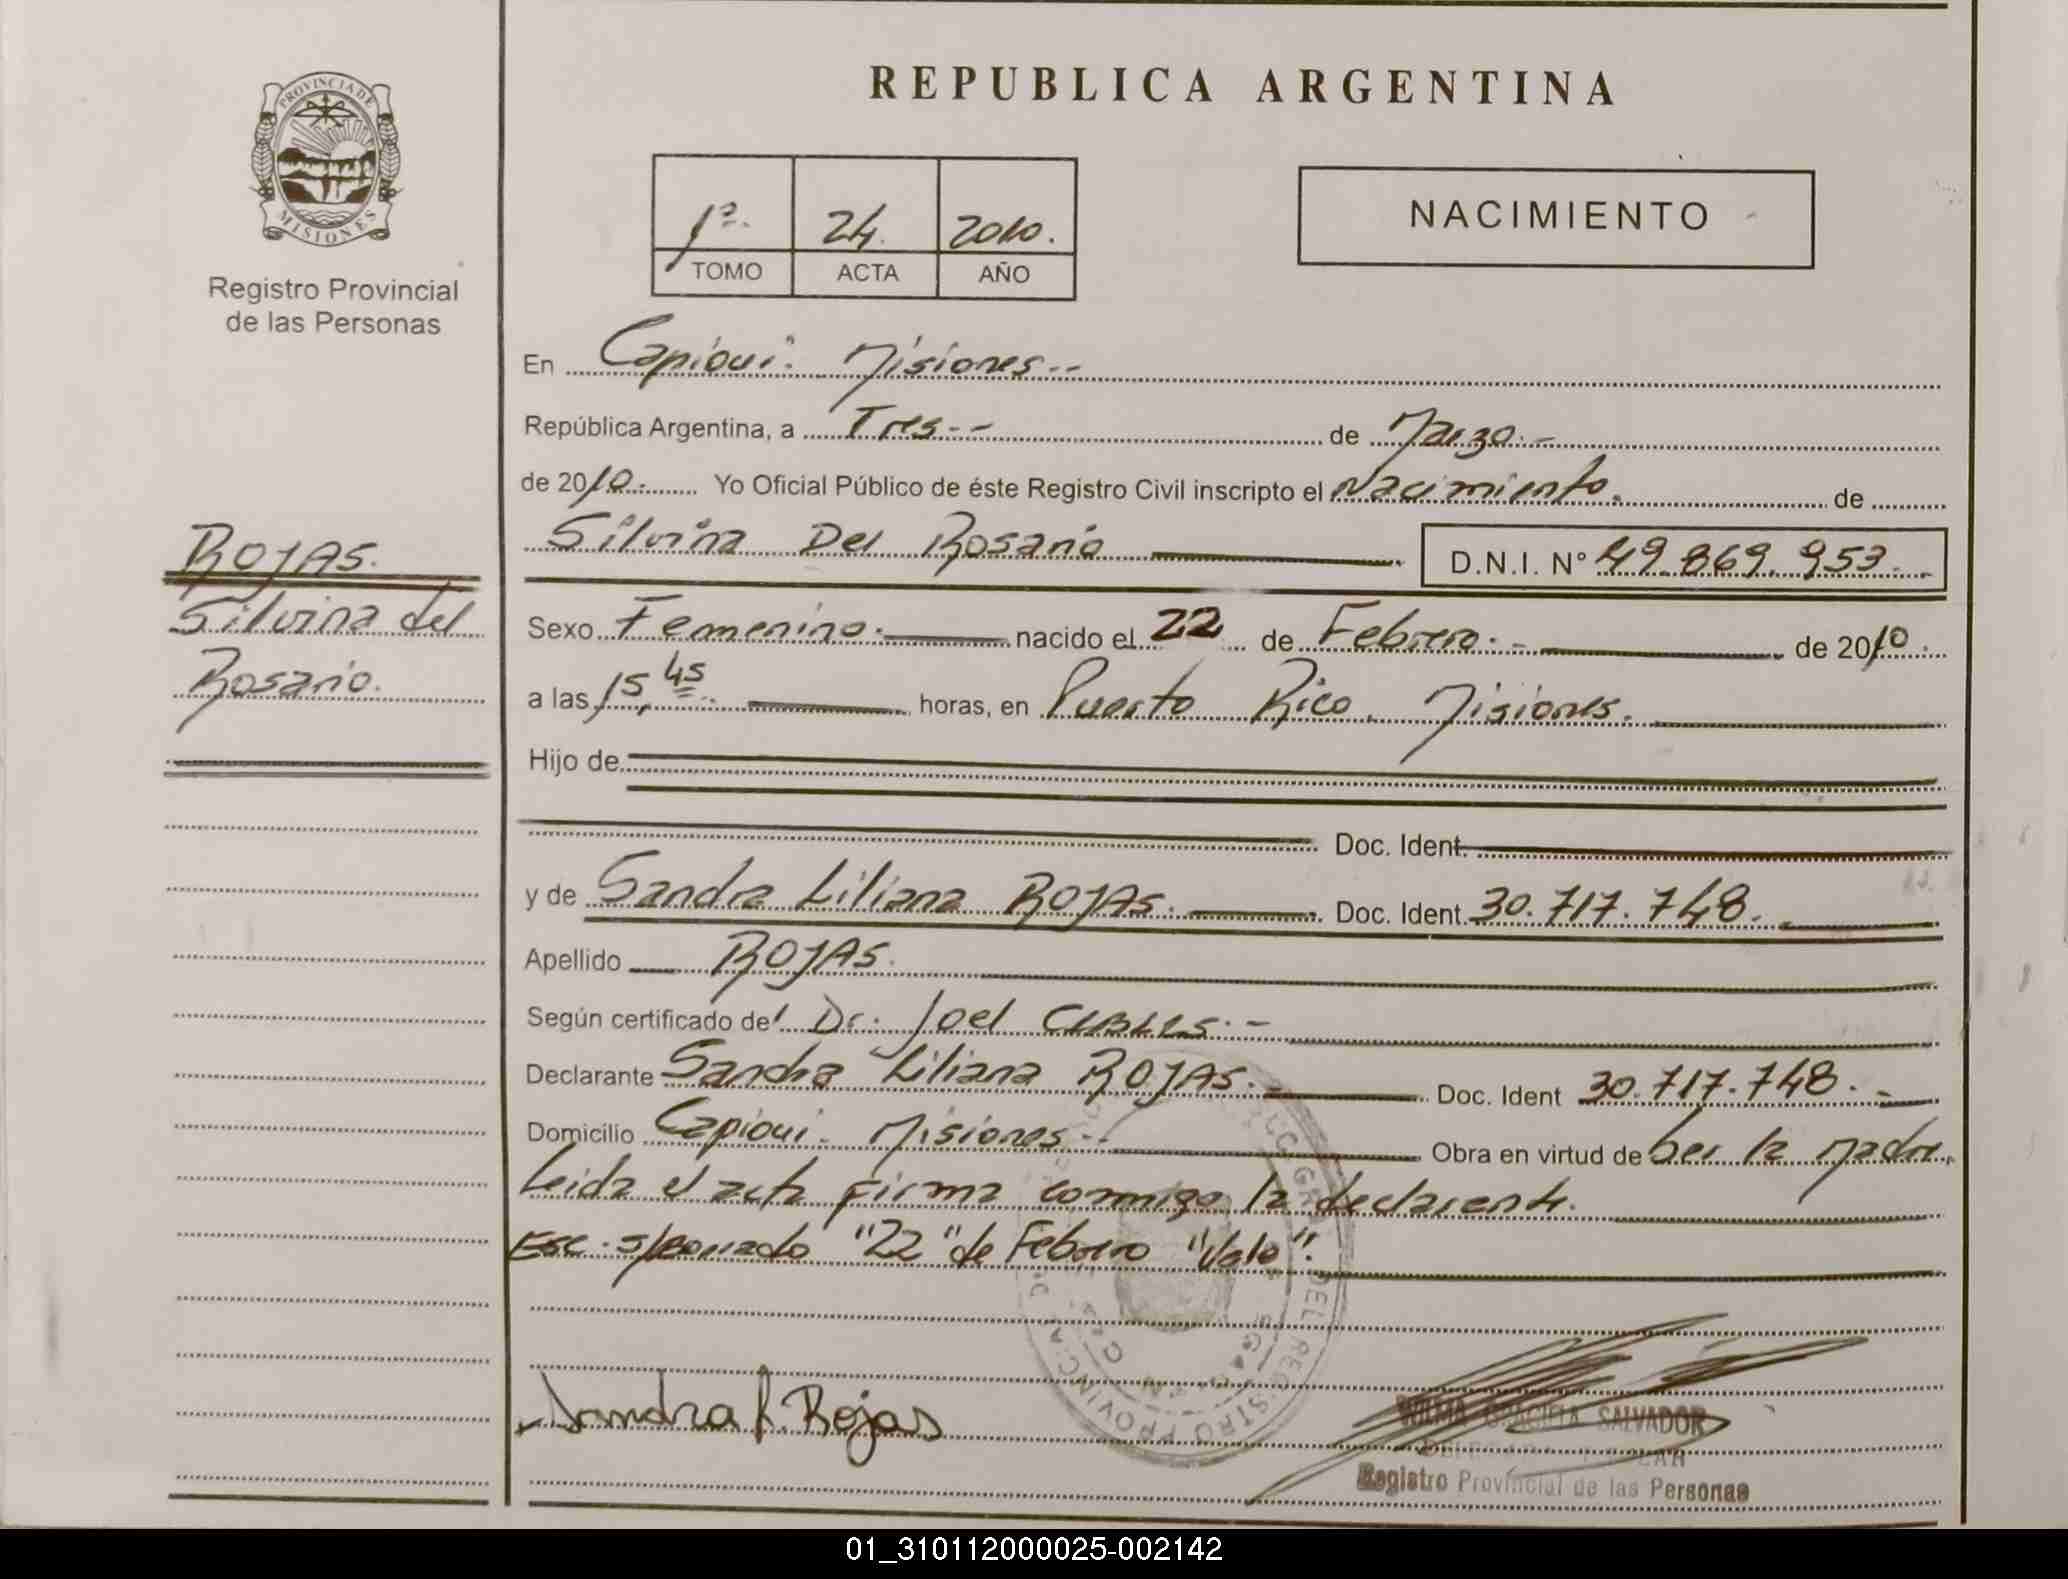 PROVINCIA DE
MISIONES
Registro Provincial
de las Personas
ROJAS.
Silvina del
Rosario.
REPUBLICA ARGENTINA
1º. 24. 2010.
TOMO ACTA AÑO
NACIMIENTO
En Capioui. Misiones.-
República Argentina, a Tres.- de Marzo.-
de 2010. Yo Oficial Público de éste Registro Civil inscripto el Nacimiento. de
Silvina Del Rosario D.N.I. Nº 49.869.953.
Sexo Femenino. nacido el 22 de Febrero.- de 2010.
a las 15,45 horas, en Puerto Rico. Misiones.
Hijo de
Doc. Ident.
y de Sandra Liliana ROJAS. Doc. Ident. 30.717.748.
Apellido ROJAS.
Según certificado del Dr. Joel
Declarante Sandra Liliana ROJAS. Doc. Ident 30.717.748.-
Domicilio Capioui. Misiones.- Obra en virtud de Ser la Madre.
Leida el acta firma conmigo la declarante.
"22" de Febrero "Vale".
Sandra L. Rojas
WILMA GRACIELA SALVADOR
Registro Provincial de las Personas
01_310112000025-002142